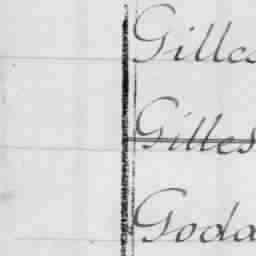 Gilles
Gilles
Goda